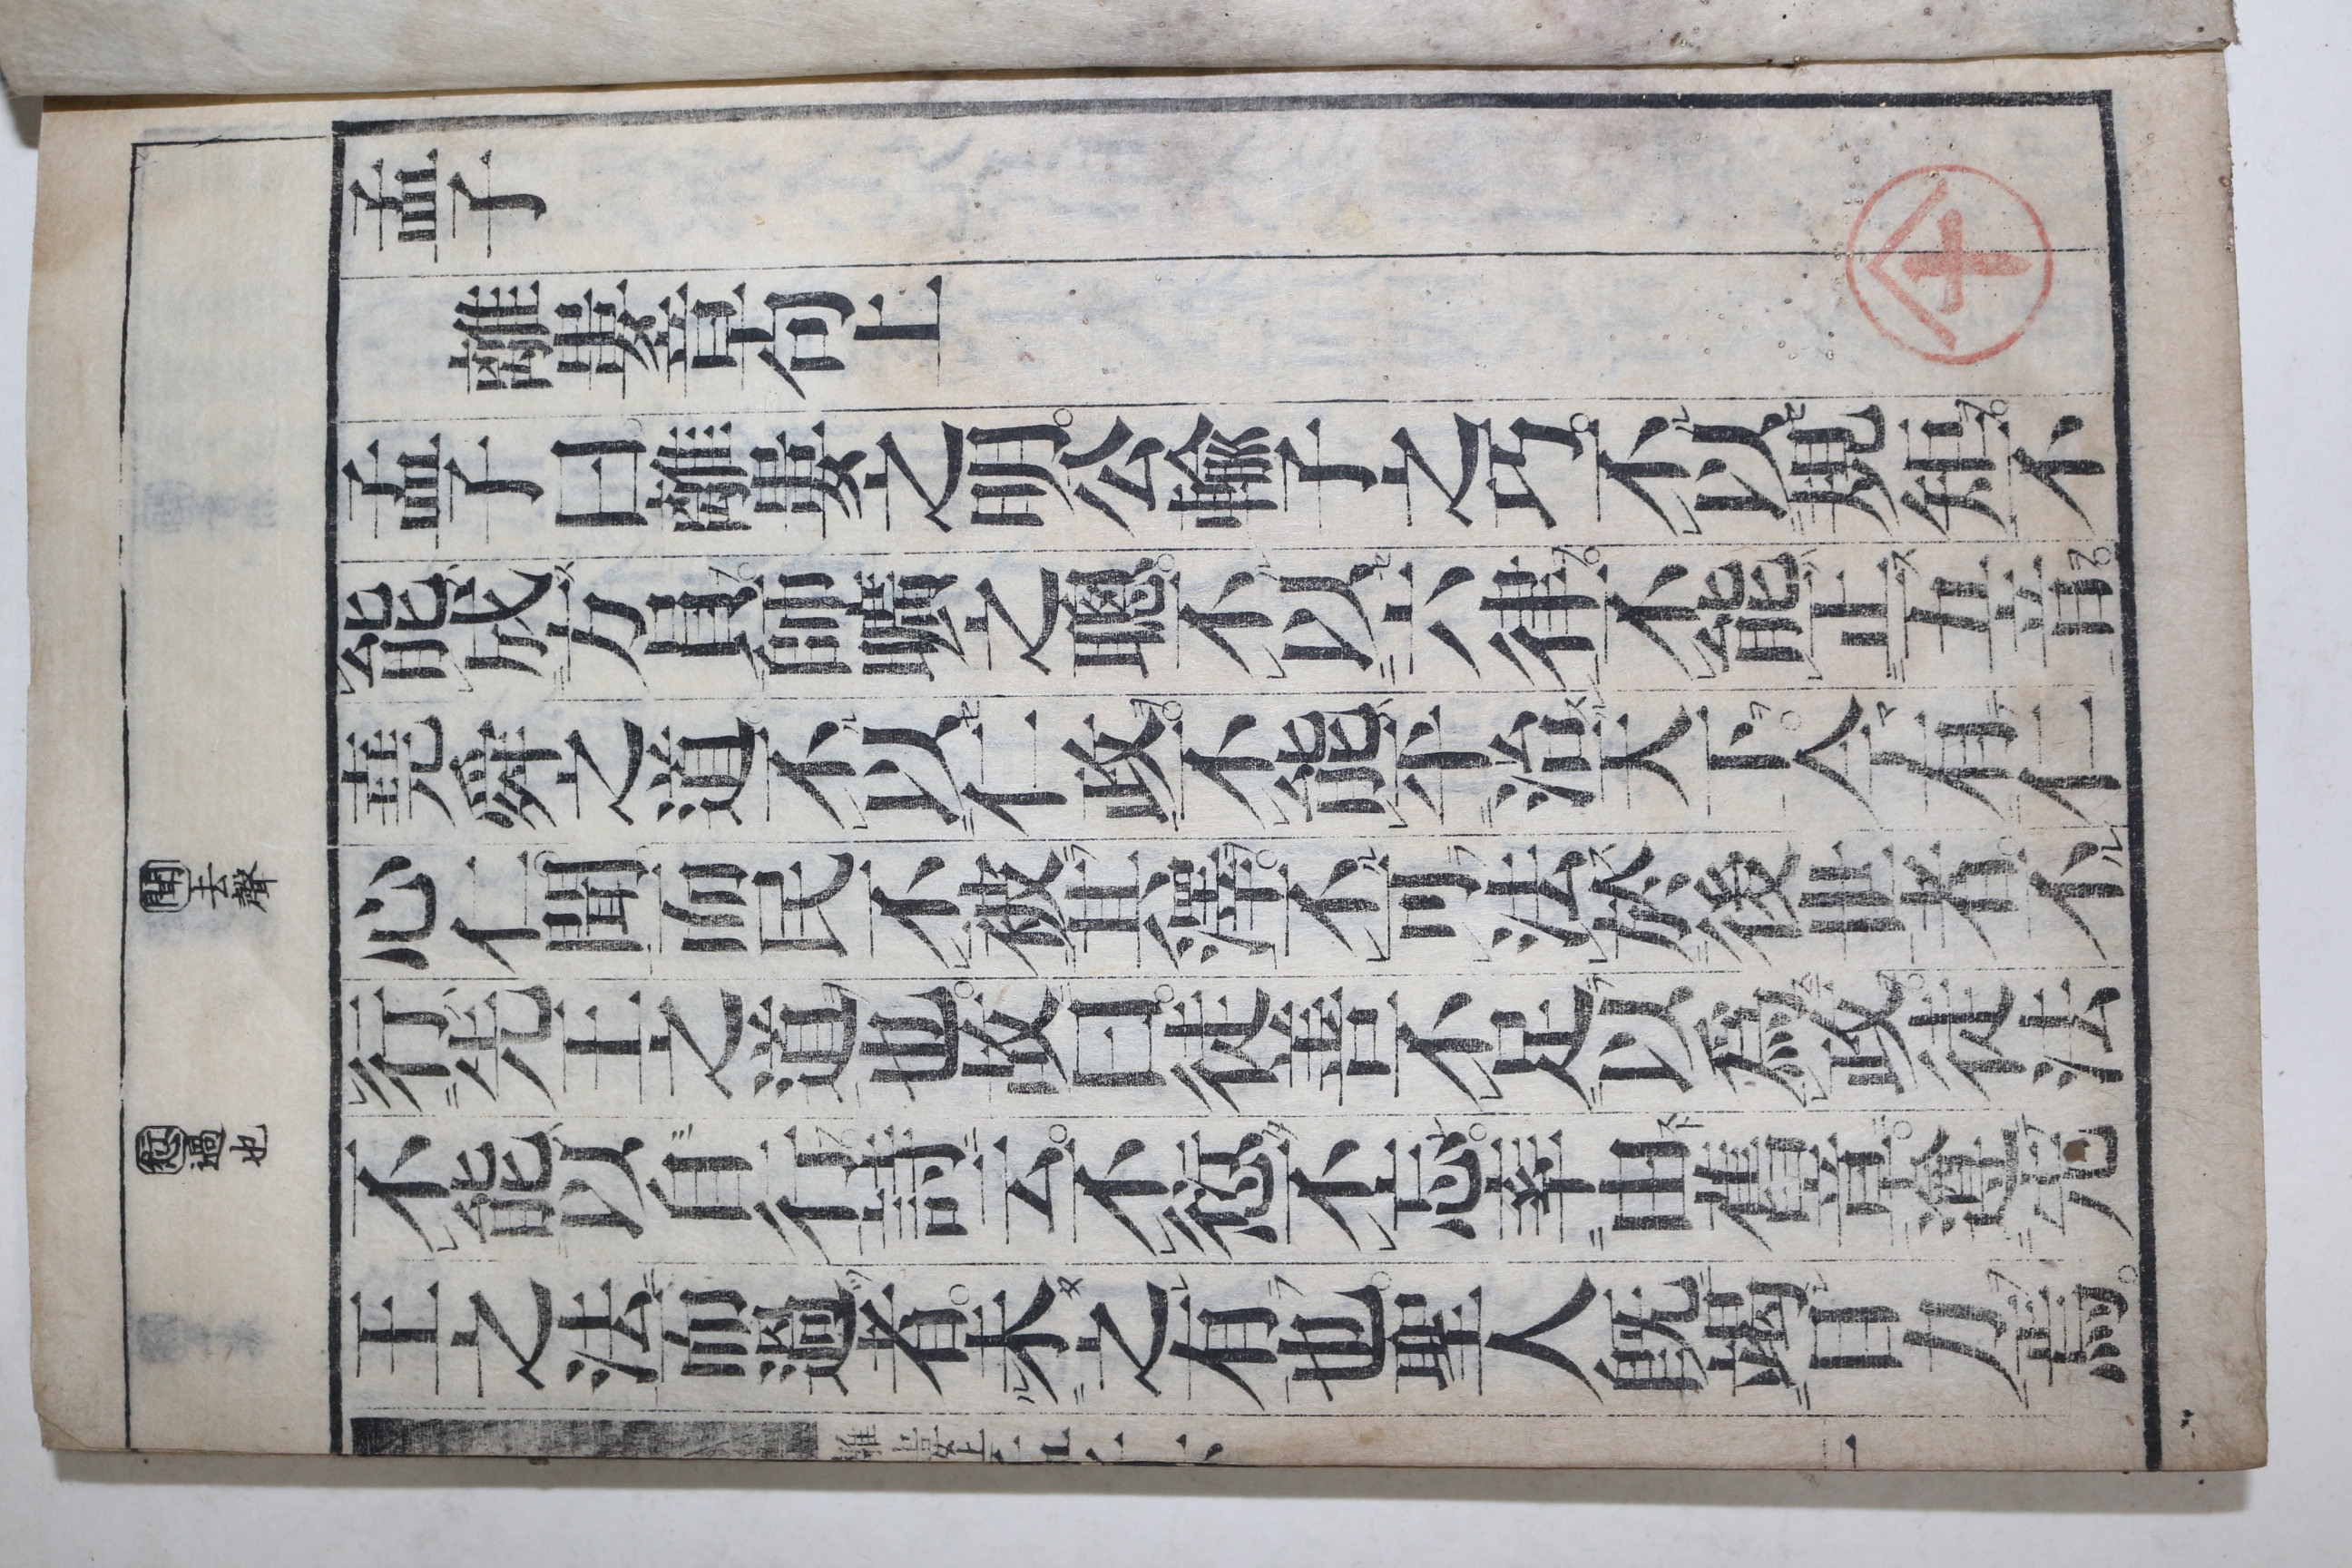 聞去聲
愆過也
孟子
離婁章句上
孟子曰離婁之明。公輸子之巧。不以規矩。不
能成方員。師曠之聰。不以六律。不能正五音。
堯舜之道。不以仁政。不能平治天下。今有仁
心仁聞。而民不被其澤。不可法於後世者。不
行先王之道也。故曰。徒善不足以爲政。徒法
不能以自行。詩云。不愆不忘。率由舊章。遵先
王之法而過者。未之有也。聖人既竭目力焉。
離婁上